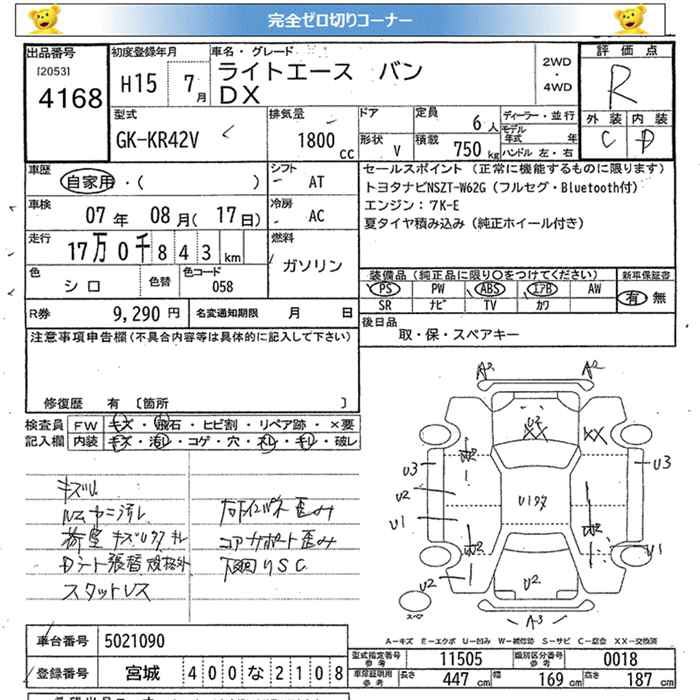 完全ゼロ切りコーナー
出品番号
[2053]
4168
初度登録年月
H15 7月
車名・グレード
ライトエース バン
DX
2WD
・
4WD
評価点
R
外装 内装
C D
型式
GK-KR42V
排気量
1800
cc
ドア
形状
V
定員
6人
積載
750 kg
ディーラー・並行
モデル年式 年
ハンドル 左・右
車歴
自家用・( )
シフト
AT
車検
07年 08月( 17日)
冷房
AC
走行
17万0千843 km
燃料
ガソリン
色
シロ
色替
色コード
058
R券 9,290円
名変通知期限 月 日
セールスポイント (正常に機能するものに限ります)
トヨタナビNSZT-W62G(フルセグ・Bluetooth付)
エンジン:7K-E
夏タイヤ積み込み(純正ホイール付き)
装備品(純正品に限り○をつけてください)
新車保証書
PS PW ABS エアB AW
SR ナビ TV カワ
有 無
後日品
取・保・スペアキー
注意事項申告欄(不具合内容等は具体的に記入して下さい)
修復歴 有 〔箇所 〕
検査員
記入欄
FW キズ・飛石・ヒビ割・リペア跡・×要
内装 キズ・汚レ・コゲ・穴・スレ・キレ・破レ
キズU
ルームヤニ汚レ
荷室キズUクタキレ
Dシート張替 規格外
スタットレス
コアサポート歪み
下回りSC
A2 A2
U2
XX XX
W2
U3 U3
U2
U1
U1タタ
W2
W2 U1
U2 U2
スペア
A3
A-キズ E-エクボ U-凹ミ W-補修跡 S-サビ C-腐食 XX-交換済
車台番号 5021090
登録番号 宮城 400 な 2108
型式指定番号
参考
11505
類別区分番号
参考
0018
車検証現用
参考
長さ 447 cm 幅 169 cm 高さ 187 cm